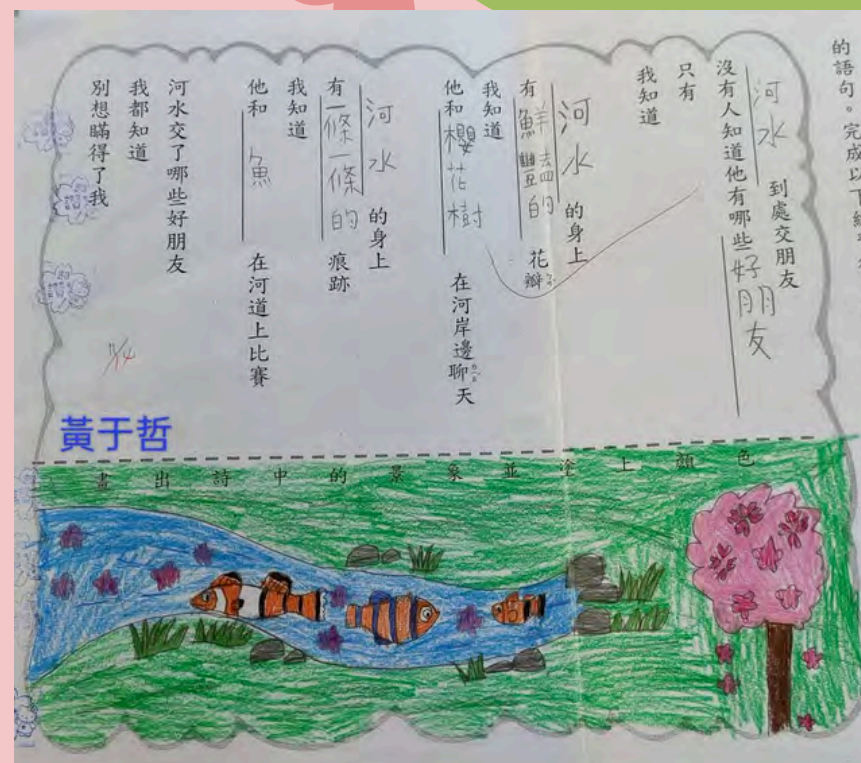 的語句。完成以下
河水到處交朋友
沒有人知道他有哪些好朋友
只有
我知道
河水的身上
有鮮豔的花瓣
我知道
他和櫻花樹在河岸邊聊天
河水的身上
有一條一條的痕跡
我知道
他和魚在河道上比賽
河水交了哪些好朋友
我都知道
別想瞞得了我
黃于哲
畫出詩中的景象並塗上顏色